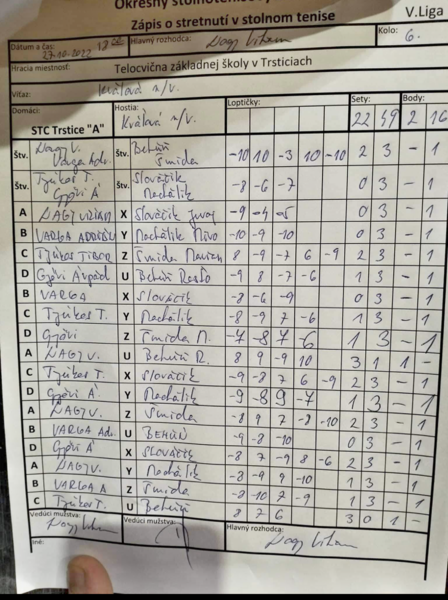 Okresný stolnotenisový
Zápis o stretnutí v stolnom tenise V.Liga
Dátum a čas: 27.10.2022 18 00 Hlavný rozhodca: Nagy Viliam Kolo: 6.
Hracia miestnosť: Telocvičňa základnej školy v Trsticiach
Víťaz: Kráľová n/V.
Domáci: Hostia: Loptičky: Sety: Body:
STC Trstice "A" Kráľová n/V. 22 49 2 16
Štv. Nagy V. Varga Adr. Štv. Behúň Šmida -10 10 -3 10 -10 2 3 - 1
Štv. Tjúkos T. Gyóri Á Štv. Slováčik Macháčik -8 -6 -7 0 3 - 1
A NAGY VILIAM X Slováčik Juraj -9 -4 -5 0 3 - 1
B VARGA ADRIÁN Y Macháčik Miro -10 -9 -10 0 3 - 1
C Tjúkos TIBOR Z Šmida 8 -9 -7 6 -9 2 3 - 1
D Gyóri Árpád U Behúň Rasťo -9 8 -7 -6 1 3 - 1
B VARGA X Slováčik -8 -6 -9 0 3 - 1
C Tjúkos T. Y Macháčik -8 -9 7 -6 1 3 - 1
D Gyóri Z Šmida M. -7 -8 7 -6 1 3 - 1
A NAGY V. U Behúň R. 8 9 -9 10 3 1 1 -
C Tjúkos T. X Slováčik -9 -8 7 6 -9 2 3 - 1
D Gyóri Á. Y Macháčik -9 -8 9 -7 1 3 - 1
A NAGY V. Z Šmida -8 9 7 -8 -10 2 3 - 1
B VARGA Adr. U BEHÚŇ -9 -8 -10 0 3 - 1
D Gyóri Á X Slováčik -8 7 -9 8 -6 2 3 - 1
A NAGY V. Y Macháčik -8 -9 9 -10 1 3 - 1
B VARGA A Z Šmida -8 -10 7 -9 1 3 - 1
C Tjúkos T. U Behúň 8 7 6 3 0 1 -
Vedúci mužstva: Vedúci mužstva: Hlavný rozhodca:
Nagy Viliam Nagy Viliam
Iné: